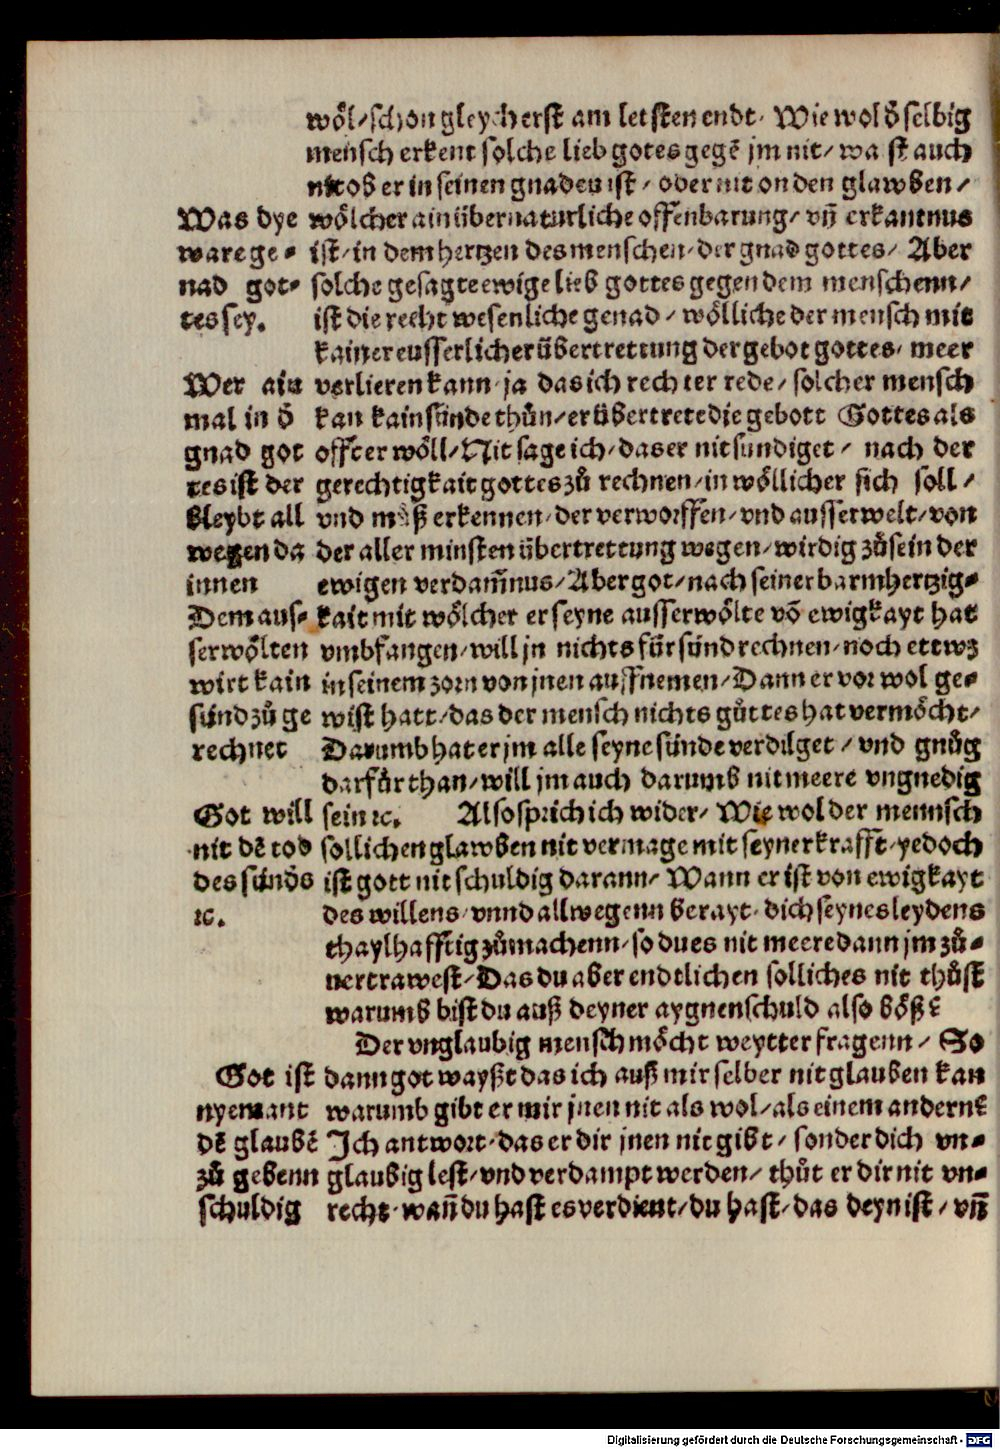 wöl/ schon gleych erst am letsten endt. Wie wol d̄ selbig
mensch erkent solche lieb gotes gegē jm nit/ wa st auch
nit ob er in seinen gnaden ist/ oder nit on den glawben/
wölcher ain übernaturliche offenbarung/ vn̄ erkantnus
ist/ in dem hertzen des menschen/ der gnad gottes/ Aber
solche gesagte ewige lieb gottes gegen dem menschenn/
ist die recht wesenliche genad/ wölliche der mensch mit
kainer eusserlicher übertrettung der gebot gottes/ meer
verlieren kann/ ja das ich rechter rede/ solcher mensch
kan kain sünde thůn/ er übertrete die gebott Gottes als
offt er wöll/ Nit sage ich/ das er nit sundiget/ nach der
gerechtigkait gottes zů rechnen/ in wöllicher sich soll/
vnd můß erkennen/ der verworffen/ vnd ausserwelt/ von
der aller minsten übertrettung wegen/ wirdig zů sein der
ewigen verdam̄nus/ Aber got/ nach seiner barmhertzig⸗
kait mit wölcher er seyne ausserwölte vō ewigkayt hat
vmbfangen/ will jn nichts für sünd rechnen/ noch ettwz
in seinem zorn von jnen auffnemen/ Dann er vor wol ge⸗
wist hatt/ das der mensch nichts gůttes hat vermöcht/
Darumb hat er jm alle seyne sünde verdilget/ vnd gnůg
darfür than/ will jm auch darumb nit meere vngnedig
sein ꝛc. Also sprich ich wider/ Wie wol der mennsch
sollichen glawben nit vermage mit seyner krafft/ yedoch
ist gott nit schuldig darann/ Wann er ist von ewigkayt
des willens/ vnnd allwegenn berayt/ dich seynes leydens
thaylhafftig zůmachenn/ so du es nit meere dann jm zů⸗
uertrawest/ Das du aber endtlichen solliches nit thůst
warumb bist du auß deyner aygnen schuld also böß?
Der vnglaubig mensch möcht weytter fragenn/ So
dann got wayßt das ich auß mir selber nit glauben kan
warumb gibt er mir jnen nit als wol/ als einem andern?
Ich antwort/ das er dir jnen nit gibt/ sonder dich vn⸗
glaubig lest/ vnd verdampt werden/ thůt er dir nit vn⸗
recht/ wan̄ du hast es verdient/ du hast/ das deyn ist/ vn̄
Was dye
ware ge⸗
nad got⸗
tes sey.
Wer ain
mal in d̄
gnad got
tes ist der
bleybt all
wegen da
innen
Dem aus⸗
serwölten
wirt kain
sünd zů ge
rechnet
Got will
nit dē tod
des sünds
ꝛc.
Got ist
nyemant
dē glaubē
zů gebenn
schuldig
Digitalisierung gefördert durch die Deutsche Forschungsgemeinschaft - DFG